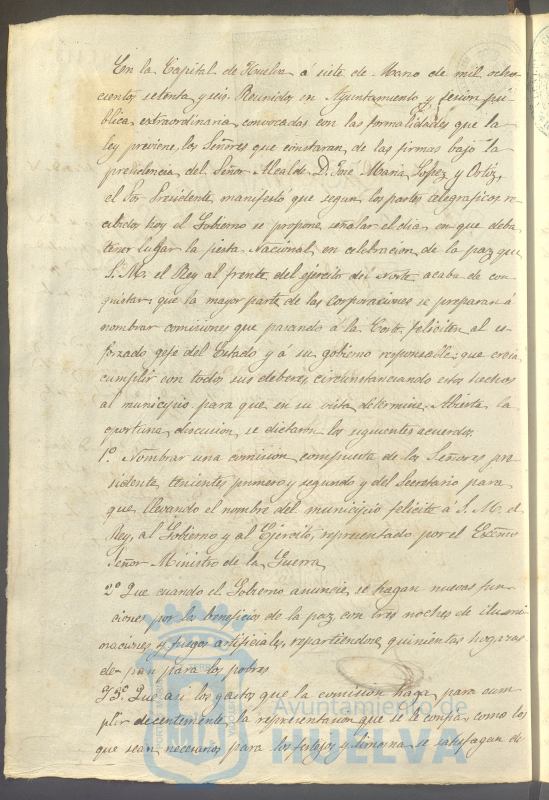 En la Capital de Huelva á siete de Marzo de mil ocho-
cientos setenta y seis. Reunidos en Ayuntamiento y sesion pú-
blica extraordinaria, convocadas con las formalidades que la
ley previene, los Señores que constaran, de las firmas bajo la
presidencia del Señor Alcalde D. José Maria Lopez y Ortiz,
el Sor Presidente, manifestó que segun los partes telegraficos re-
cibidos hoy el Gobierno se propone señalar el dia en que deba
tener lugar la fiesta Nacional, en celebracion de la paz que
S. M. el Rey al frente del ejercito del Norte acaba de con-
quistar, que la mayor parte de las Corporaciones se preparan á
nombrar comisiones que pasando á la Corte feliciten al es-
forzado gefe del Estado y á su gobierno responsable: que creia
cumplir con todos sus deberes, circunstanciando estos hechos
al municipio para que en su vista determine. Abierta la
oportuna discucion, se dictaron los siguientes acuerdos.
1º. Nombrar una comision compuesta de los Señores pre-
sidente, tenientes primero y segundo y del Secretario para
que llevando el nombre del municipio felicite á S. M. el
Rey, al Gobierno y al Ejercito, representado por el Excmo
Señor Ministro de la Guerra
2º Que cuando el Gobierno anuncie, se hagan nuevas fun-
ciones por los beneficios de la paz con tres noches de ilumi-
naciones y fuegos artificiales, repartiendose, quinientas hogazas
de pan para los pobres
Y 3º. Que asi los gastos que la comision haga, para cum-
plir decentemente la representacion que se le confia, como los
que sean necesarios para los festejos y limosna se satisfagan de
Ayuntamiento de
HUELVA